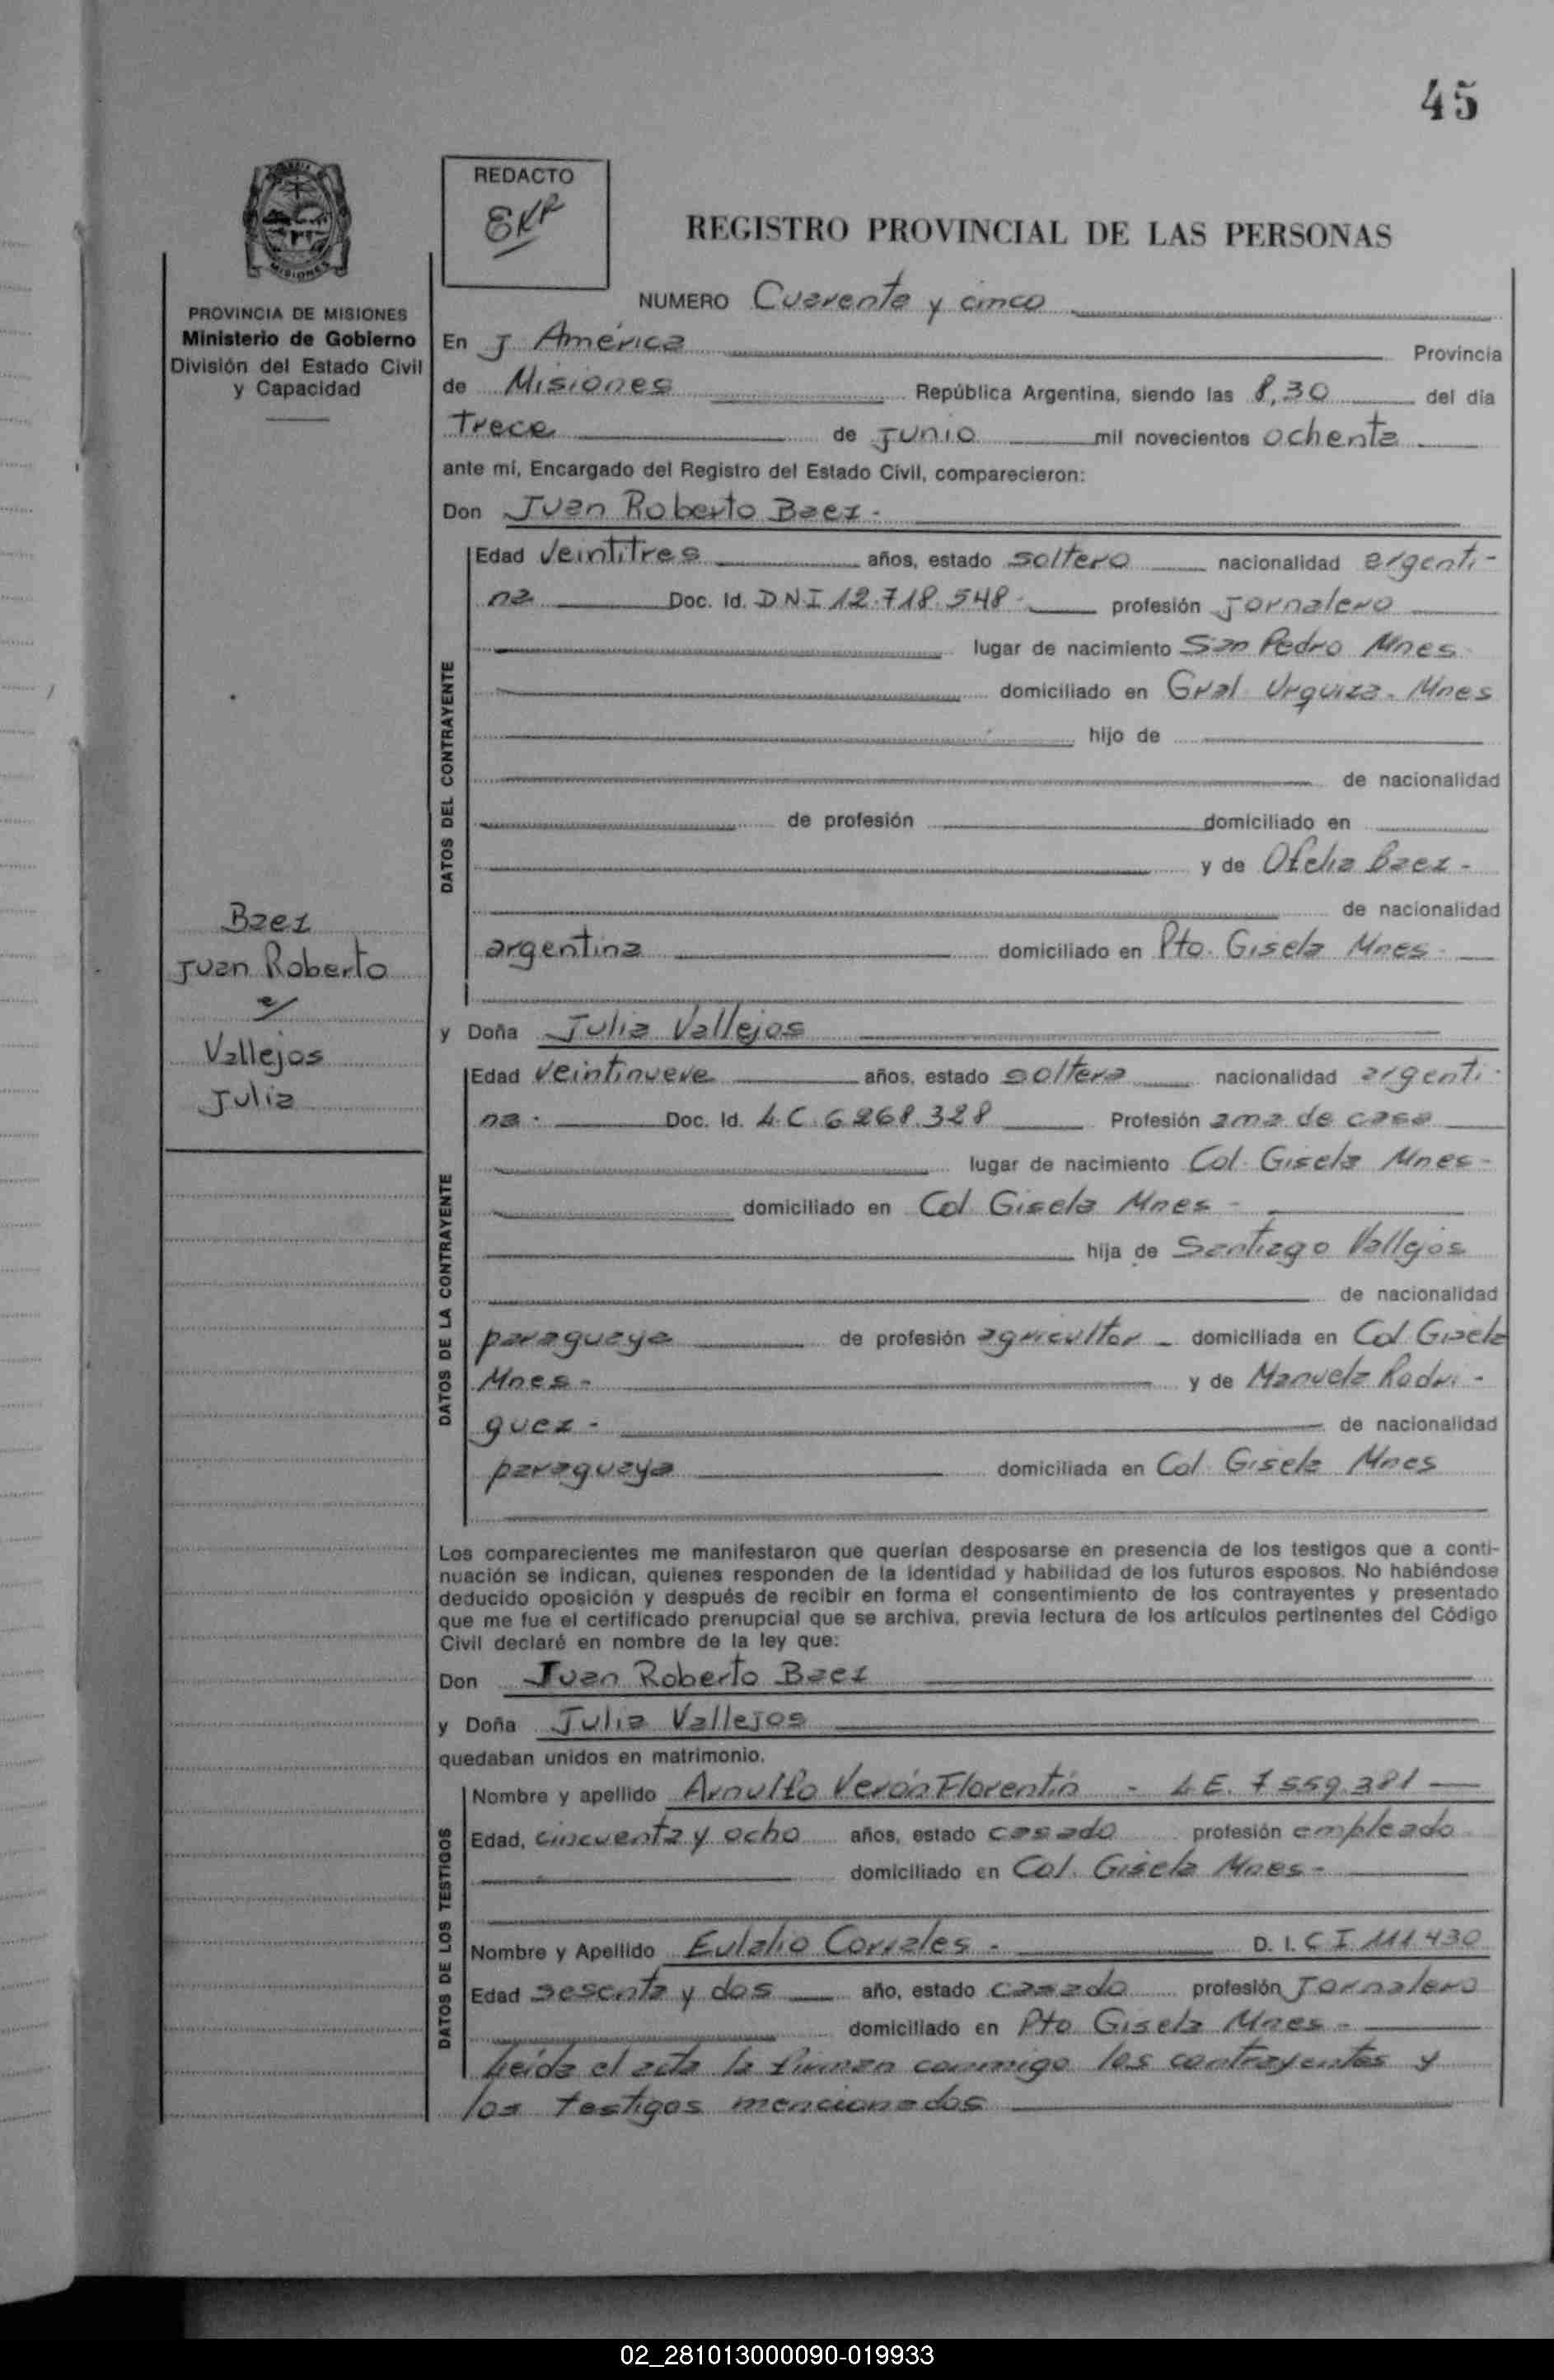 45
REDACTO
REGISTRO PROVINCIAL DE LAS PERSONAS
MISIONES
PROVINCIA DE MISIONES
Ministerio de Gobierno
División del Estado Civil
y Capacidad
NUMERO Cuarenta y cinco
En J América Provincia
de Misiones República Argentina, siendo las 8,30 del día
Trece de junio mil novecientos ochenta
ante mí, Encargado del Registro del Estado Civil, comparecieron:
Don Juan Roberto Baez -
DATOS DEL CONTRAYENTE
Edad Veintitres años, estado soltero nacionalidad argenti-
na Doc. Id. DNI 12.718.548- profesión Jornalero
lugar de nacimiento San Pedro Mnes
domiciliado en Gral Urquiza - Mnes
hijo de
de nacionalidad
de profesión domiciliado en
y de Ofelia Baez -
de nacionalidad
argentina domiciliado en Pto. Gisela Mnes
Baez
Juan Roberto
c/
Vallejos
Julia
y Doña Julia Vallejos
DATOS DE LA CONTRAYENTE
Edad Veintinueve años, estado soltera nacionalidad argenti-
na - Doc. Id. L.C. 6268.328 Profesión ama de casa
lugar de nacimiento Col. Gisela Mnes -
domiciliado en Col Gisela Mnes -
hija de Santiago Vallejos
de nacionalidad
paraguaya de profesión agricultor - domiciliada en Col Gisela
Mnes - y de Manuela Rodri -
guez - de nacionalidad
paraguaya domiciliada en Col. Gisela Mnes
Los comparecientes me manifestaron que querían desposarse en presencia de los testigos que a conti-
nuación se indican, quienes responden de la identidad y habilidad de los futuros esposos. No habiéndose
deducido oposición y después de recibir en forma el consentimiento de los contrayentes y presentado
que me fue el certificado prenupcial que se archiva, previa lectura de los artículos pertinentes del Código
Civil declaré en nombre de la ley que:
Don Juan Roberto Baez
y Doña Julia Vallejos
quedaban unidos en matrimonio.
DATOS DE LOS TESTIGOS
Nombre y apellido Arnulfo Verón Florentín - L.E. 7559.381
Edad, cincuenta y ocho años, estado casado profesión empleado
domiciliado en Col. Gisela Mnes -
Nombre y Apellido Eulalio Corrales - D. I. C I 111.430
Edad Sesenta y dos año, estado casado profesión Jornalero
domiciliado en Pto Gisela Mnes -
Leída el acta la firman conmigo los contrayentes y
los testigos mencionados
02_281013000090-019933